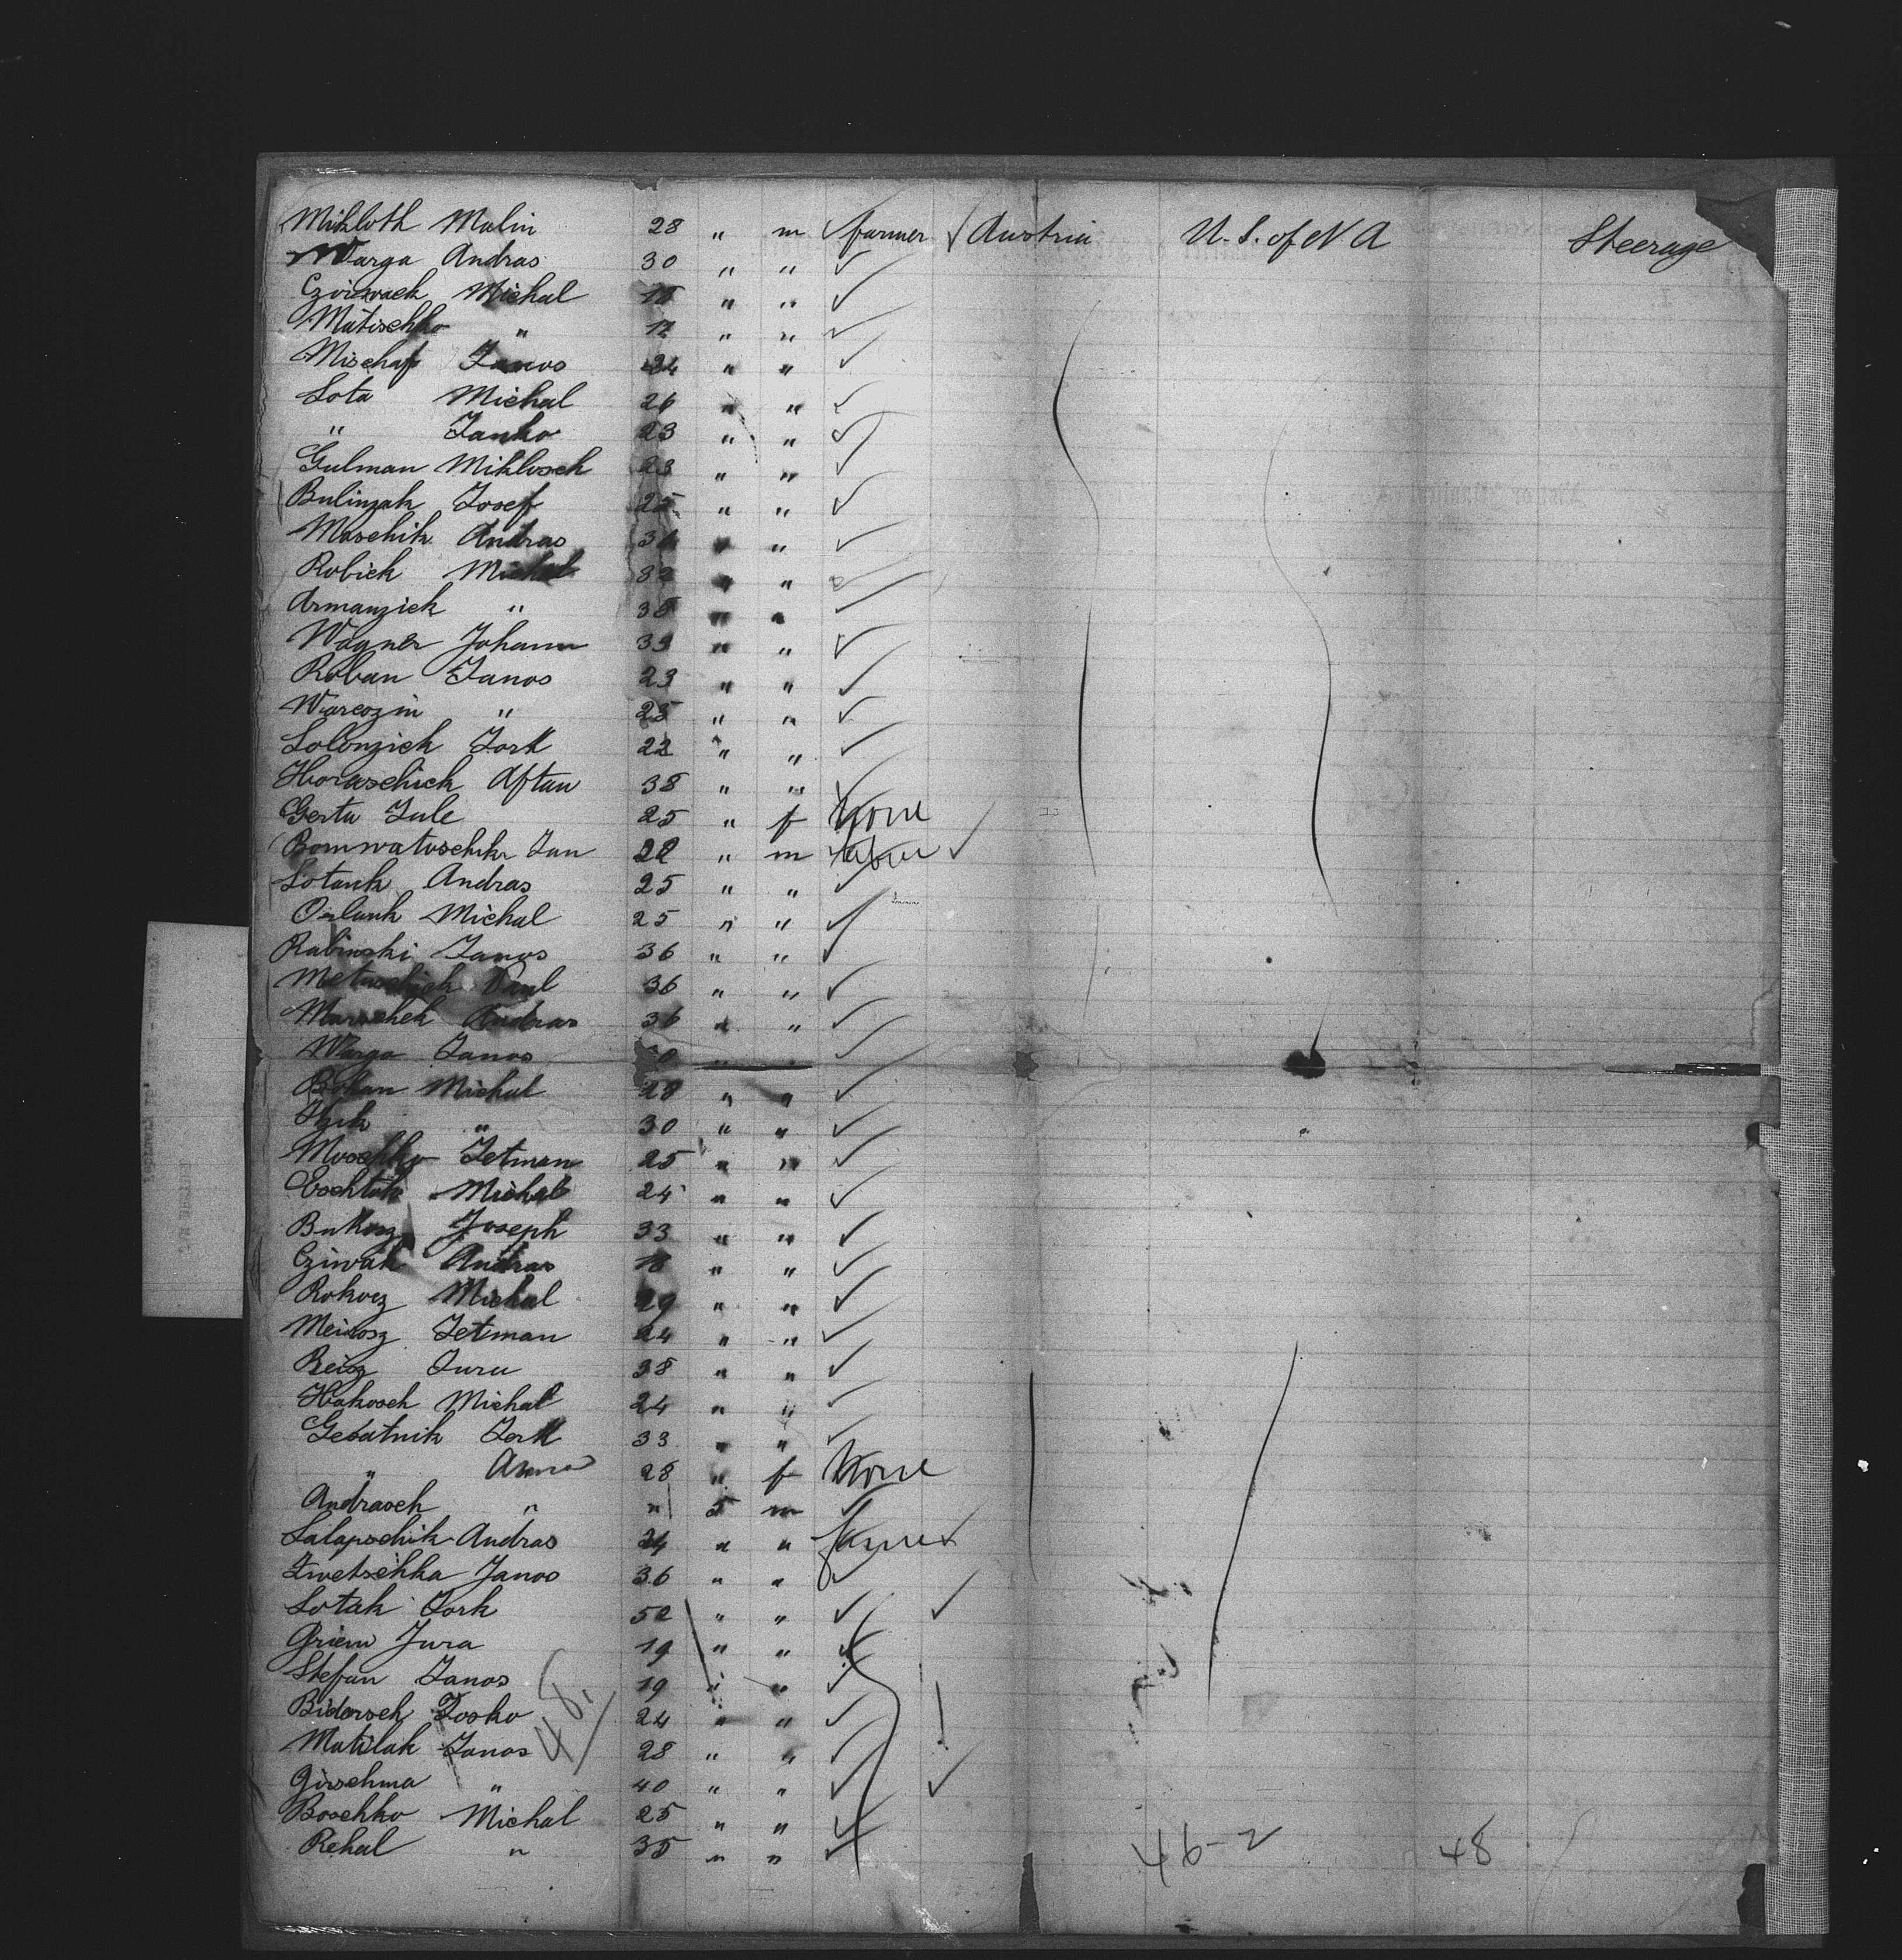 Mikloth Malin 28 " m farmer Austria U. S. of N A Steerage
Warga Andras 30 " "
Michal " "
Matischko " 17 " "
Mischaf Janos 24 " "
Lota Michal 26 " "
" Janko 23 " "
Gulman Miklosch 23 " "
Bulinzak Josef 25 " "
Moschik Andras " "
Robick Michal 32 " "
Armanzick " 38 " "
Wagner Johann 39 " "
Roban Janos 23 " "
Warcozin " 25 " "
Solonzick Jork 22 " "
Horaschick Aftan 38 " "
Gerta Jule 25 " f None
Jan 22 " m
Sotank Andras 25 " "
Orlank Michal 25 " "
Rabinski Janos 36 " "
Paul 36 " "
Marschek Andras 36 " "
Warga Janos " "
Bohan Michal 28 " "
" 30 " "
Moschko Jetman 25 " "
Michal 24 " "
Joseph 33 " "
Cziwak Andras 18 " "
Rokocz Michal 29 " "
Meirosz Jetman 24 " "
Juru 38 " "
Hakosch Michal 24 " "
Gesatnik Jork 33 " "
" Anna 28 " f None
Andrasch " " 5 m
Salapschik Andras " " farmer
Zwetschka Janos 36 " "
Lotak Jork 52 " "
Griem Jura 19 " "
Stefan Janos 19 " "
Bidorsch Josko 24 " "
Matilak Janos 28 " "
Girschma " 40 " "
Boschko Michal 25 " "
Rehal " 35 " "
48,
46-2 48